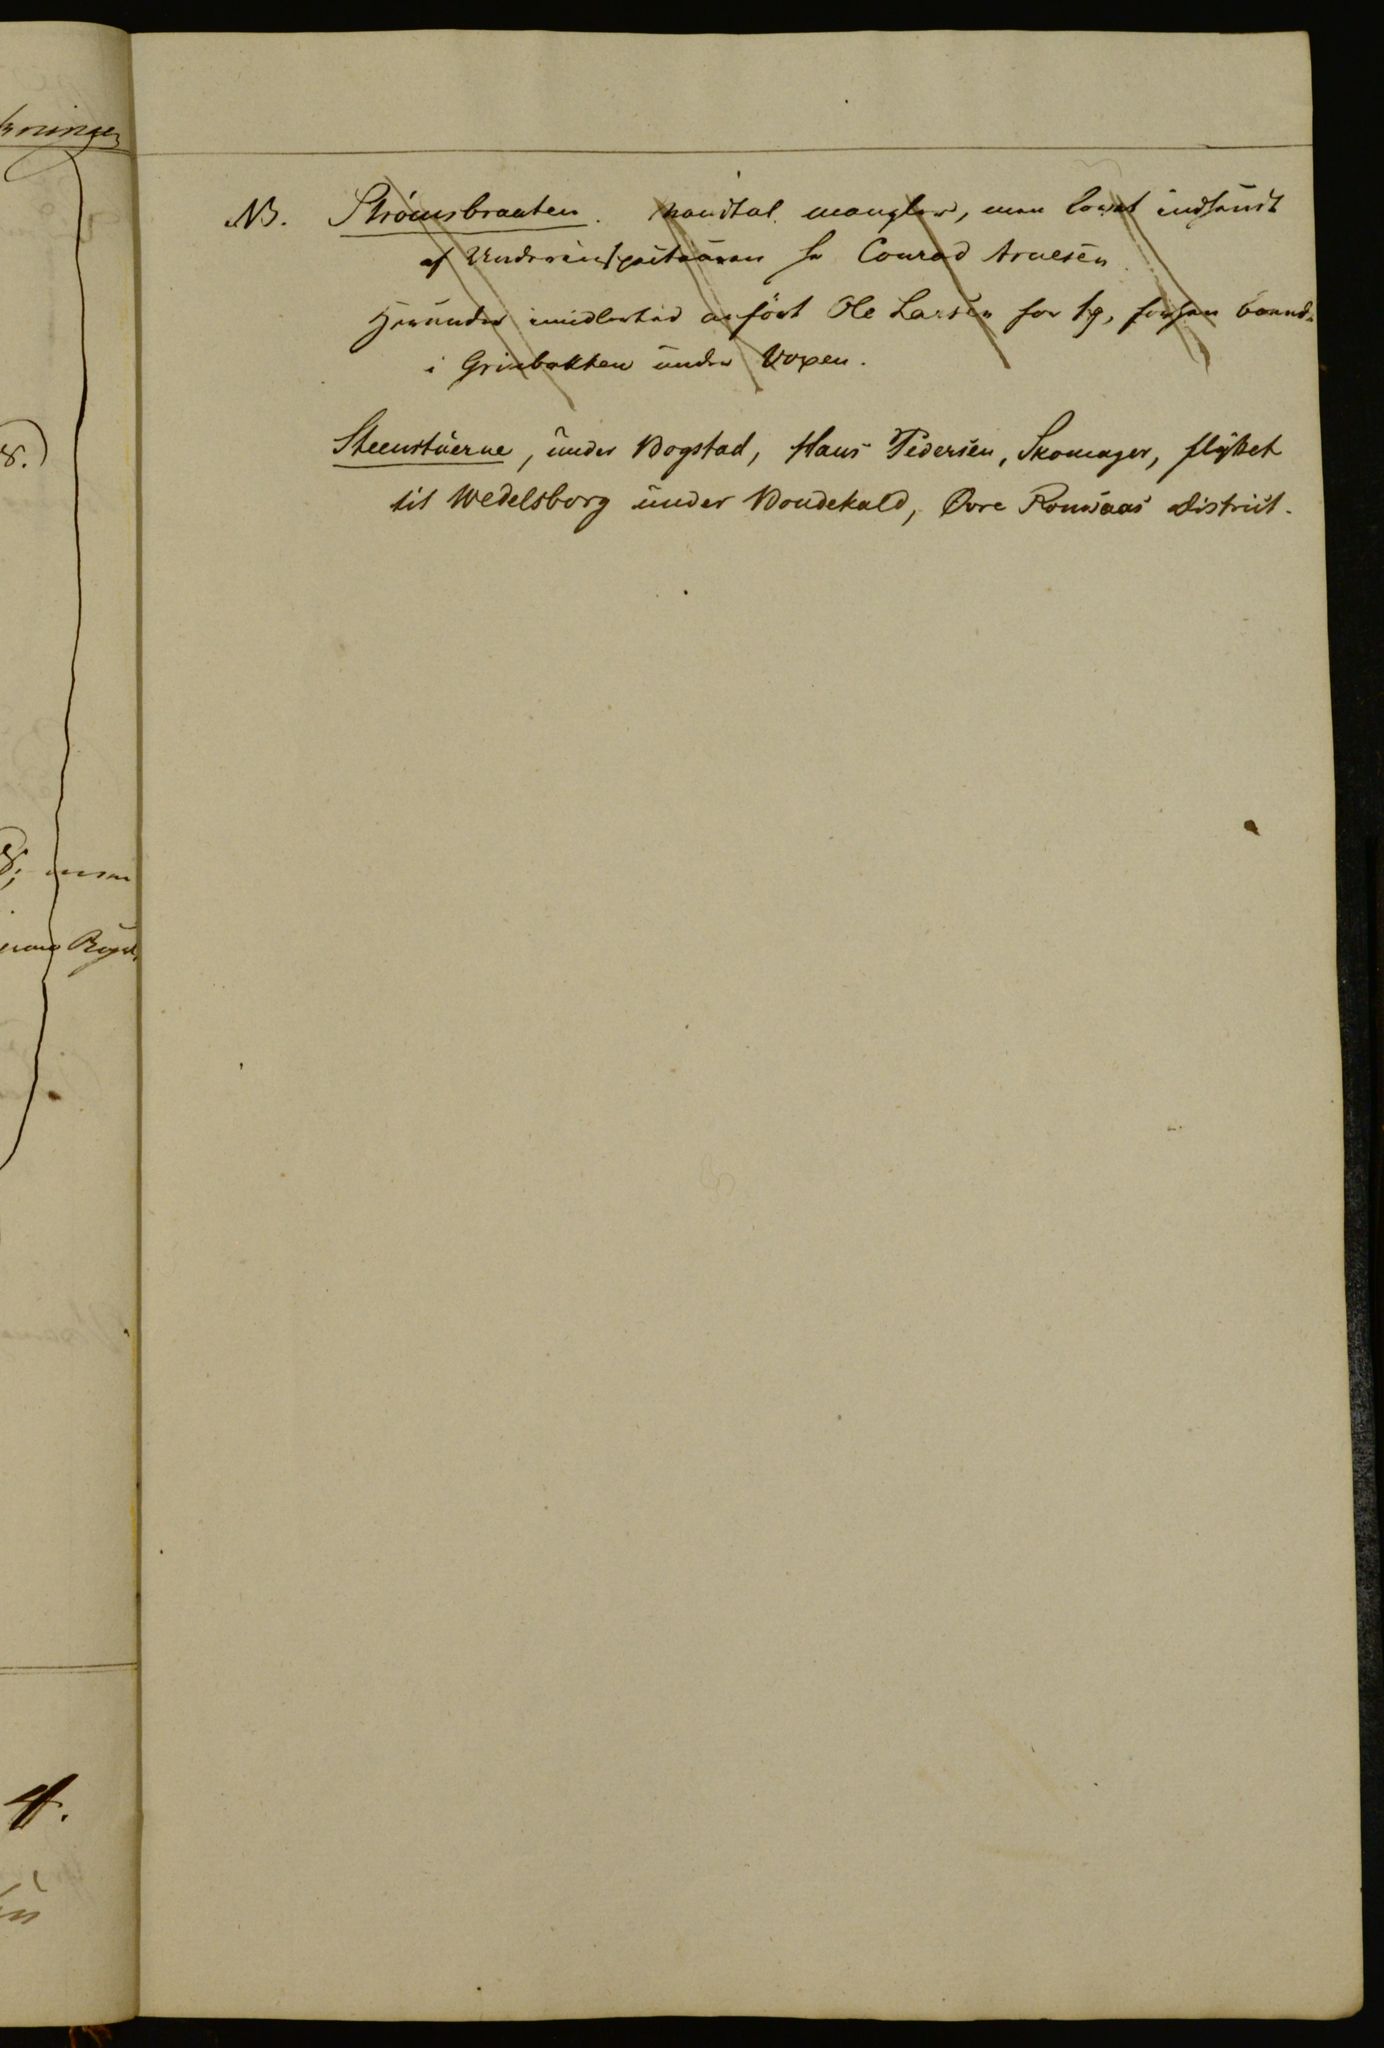 NB. Strömsbraaten. Mandtal mangler, men lovet indsendt
af Underinspecteuren Hr Conrad Arnesen.
Herunder imidlertid anfört Ole Larsen for 1 g, forhen boende
i Grinbakken under Voxen.
Steenstuerne, under Bogstad, Hans Pedersen, Skomager, flyttet
til Wedelsborg under Bondekald, Övre Romsaas District.
8.)
8; men
4.